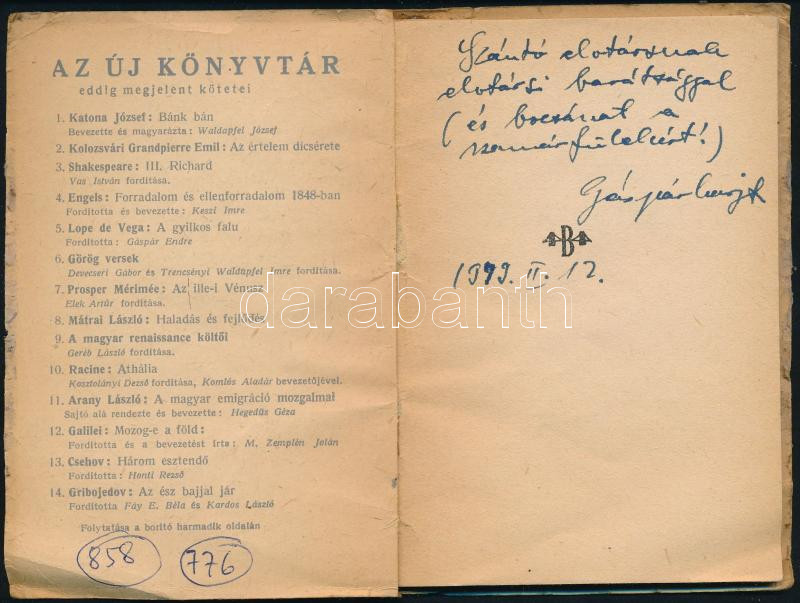 AZ ÚJ KÖNYVTÁR
eddig megjelent kötetei
1. Katona József: Bánk bán
Bevezette és magyarázta: Waldapfel József
2. Kolozsvári Grandpierre Emil: Az értelem dicsérete
3. Shakespeare: III. Richard
Vas István fordítása.
4. Engels: Forradalom és ellenforradalom 1848-ban
Fordította és bevezette: Keszi Imre
5. Lope de Vega: A gyilkos falu
Fordította: Gáspár Endre
6. Görög versek
Devecseri Gábor és Trencsényi Waldapfel Imre fordítása.
7. Prosper Mérimée: Az ille-i Vénusz
Elek Artúr fordítása.
8. Mátrai László: Haladás és fejlődés
9. A magyar renaissance költői
Geréb László fordítása.
10. Racine: Athália
Kosztolányi Dezső fordítása, Komlós Aladár bevezetőjével.
11. Arany László: A magyar emigráció mozgalmai
Sajtó alá rendezte és bevezette: Hegedűs Géza
12. Galilei: Mozog-e a föld:
Fordította és a bevezetést írta: M. Zemplén Jolán
13. Csehov: Három esztendő
Fordította: Honti Rezső
14. Gribojedov: Az ész bajjal jár
Fordította Fáy E. Béla és Kardos László
Folytatása a borító harmadik oldalán
858 776
Szántó elvtársnak
elvtársi barátsággal
(és bocsánat a
szamárfülekért!)
Gáspár
B
1949. II. 12.
darabanth